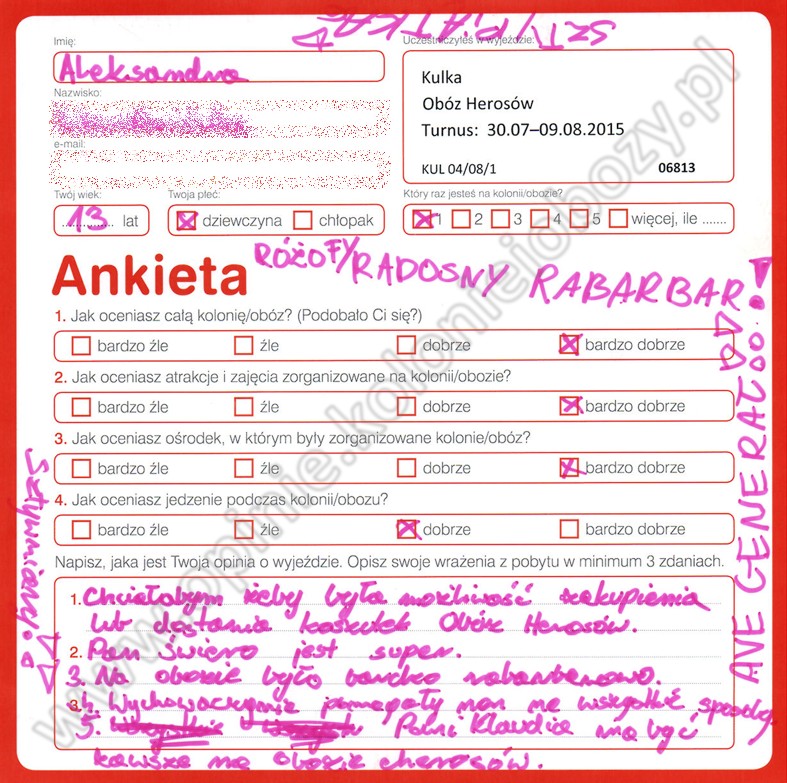 Imię:
Aleksandra
Nazwisko:
e-mail:
Uczestniczyłeś w wyjeździe:
Kulka
Obóz Herosów
Turnus: 30.07–09.08.2015
KUL 04/08/1 06813
Twój wiek:
13 lat
Twoja płeć:
dziewczyna chłopak
Który raz jesteś na kolonii/obozie?
1 2 3 4 5 więcej, ile .......
Ankieta
RADOSNY RABARBAR!
1. Jak oceniasz całą kolonię/obóz? (Podobało Ci się?)
bardzo źle źle dobrze bardzo dobrze
2. Jak oceniasz atrakcje i zajęcia zorganizowane na kolonii/obozie?
bardzo źle źle dobrze bardzo dobrze
3. Jak oceniasz ośrodek, w którym były zorganizowane kolonie/obóz?
bardzo źle źle dobrze bardzo dobrze
4. Jak oceniasz jedzenie podczas kolonii/obozu?
bardzo źle źle dobrze bardzo dobrze
Napisz, jaka jest Twoja opinia o wyjeździe. Opisz swoje wrażenia z pobytu w minimum 3 zdaniach.
1. Chciałabym żeby była możliwość zakupienia
lub dostania koszulek Obóz Herosów.
2. Pan Świero jest super.
3. Na obozie było bardzo rabarbarowo.
3. 4. Wychowawczynie pomagały nam we
5. Pani Klaudia ma być
zawsze na obozie cherosów.
AVE
www.opinie.kolonieiobozy.pl